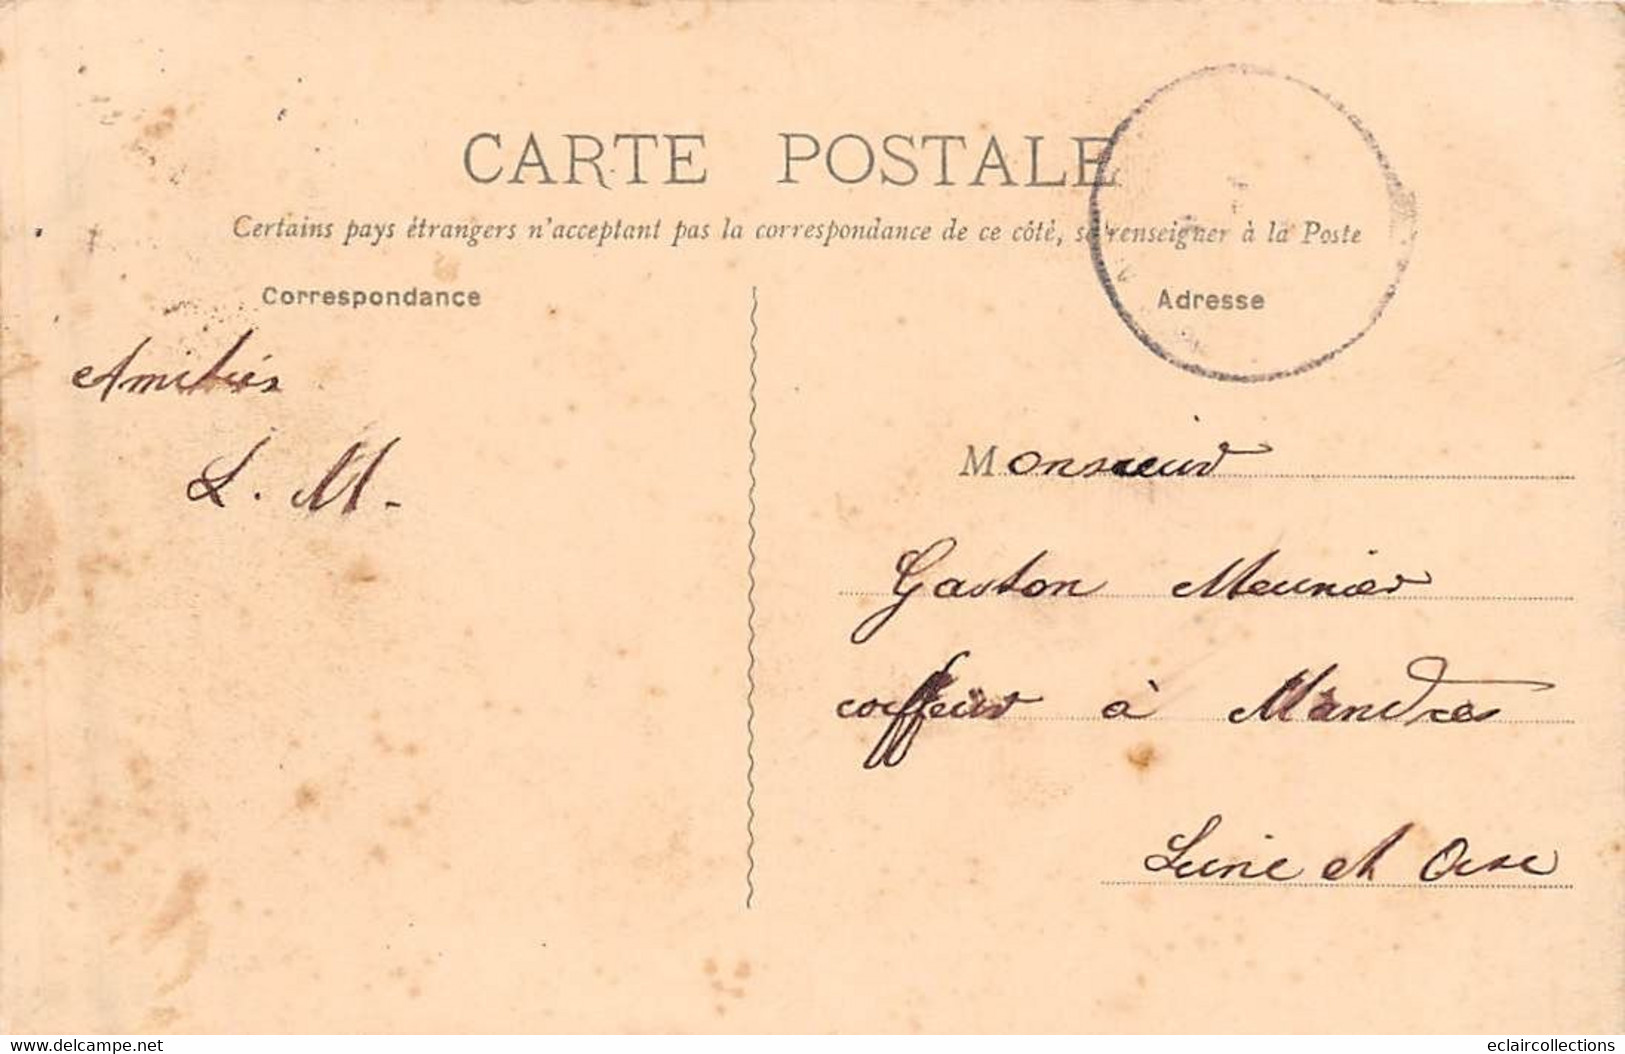 CARTE POSTALE
Certains pays étrangers n'acceptant pas la correspondance de ce côté, se renseigner à la Poste
Correspondance
Adresse
Amitiés
L. M.
Monsieur
Gaston Meunier
coiffeur à Mandres
Seine et Oise
www.delcampe.net
eclaircollections